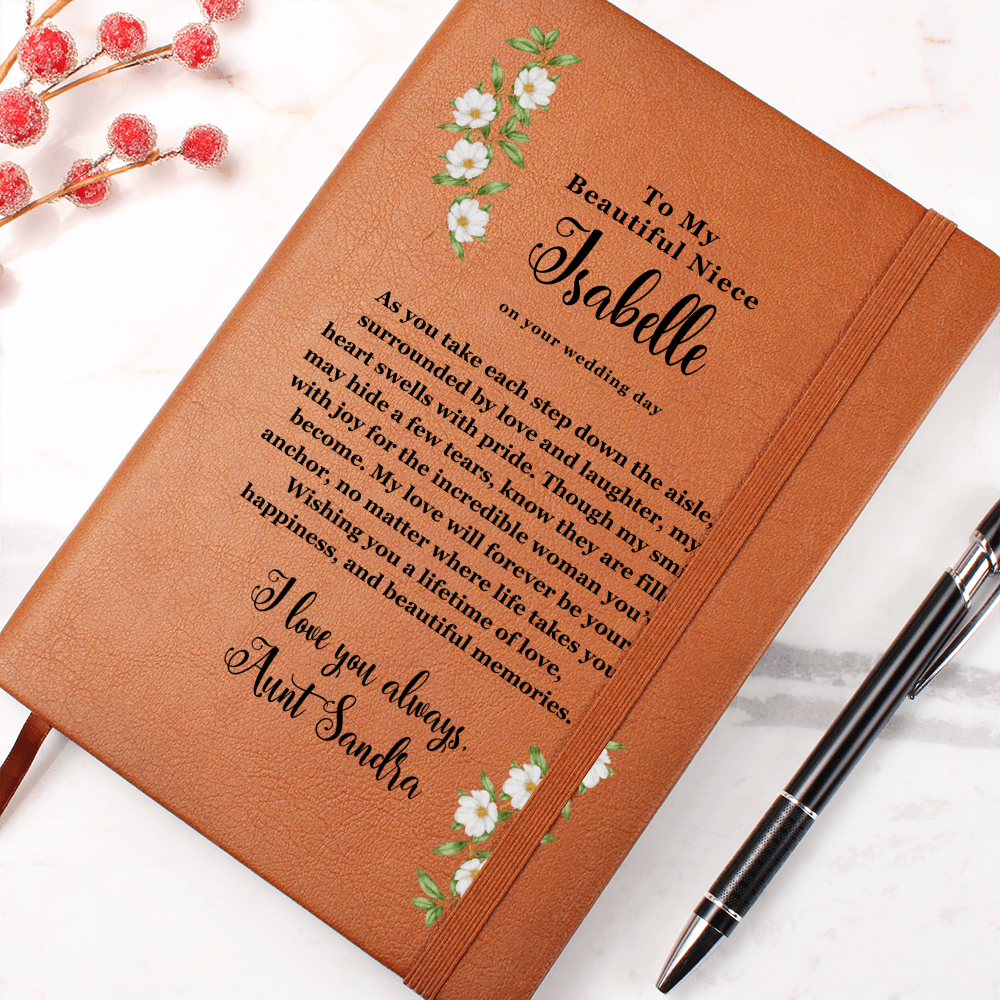 To My
Beautiful Niece
Isabelle
on your wedding day
As you take each step down the aisle,
surrounded by love and laughter, my
heart swells with pride. Though my smi
may hide a few tears, know they are fill
with joy for the incredible woman you'
become. My love will forever be your
anchor, no matter where life takes you
Wishing you a lifetime of love,
happiness, and beautiful memories.
I love you always,
Aunt Sandra